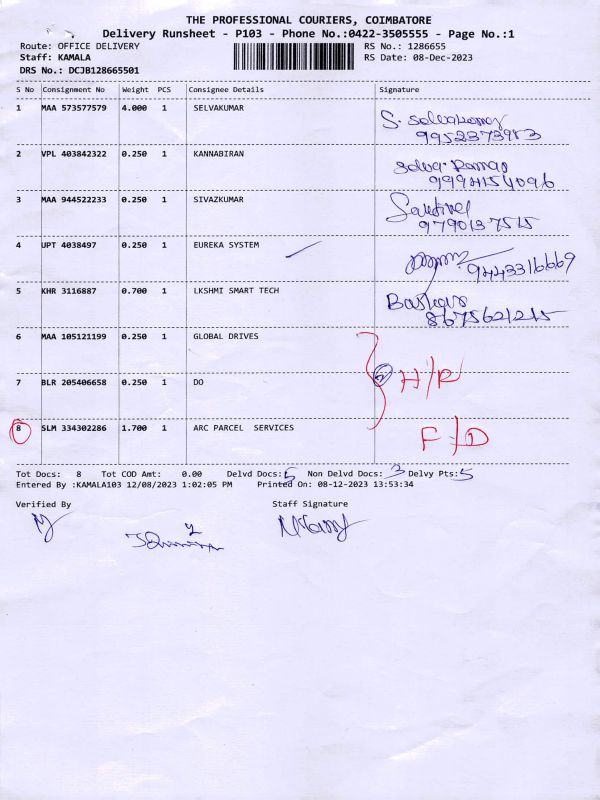 THE PROFESSIONAL COURIERS, COIMBATORE
Delivery Runsheet - P103 - Phone No.:0422-3505555 - Page No.:1
Route: OFFICE DELIVERY RS No.: 1286655
Staff: KAMALA RS Date: 08-Dec-2023
DRS No.: DCJB128665501
S No Consignment No Weight PCS Consignee Details Signature
1 MAA 573577579 4.000 1 SELVAKUMAR
S. Selvakumar
9952373983
2 VPL 403842322 0.250 1 KANNABIRAN
9994154096
3 MAA 944522233 0.250 1 SIVAZKUMAR
9790137515
4 UPT 4038497 0.250 1 EUREKA SYSTEM
9443316669
5 KHR 3116887 0.700 1 LKSHMI SMART TECH
Baskar
8675621215
6 MAA 105121199 0.250 1 GLOBAL DRIVES
7 BLR 205406658 0.250 1 DO
2 H/R
8 SLM 334302286 1.700 1 ARC PARCEL SERVICES
F/D
Tot Docs: 8 Tot COD Amt: 0.00 Delvd Docs: 5 Non Delvd Docs: 3 Delvy Pts: 5
Entered By :KAMALA103 12/08/2023 1:02:05 PM Printed On: 08-12-2023 13:53:34
Verified By Staff Signature